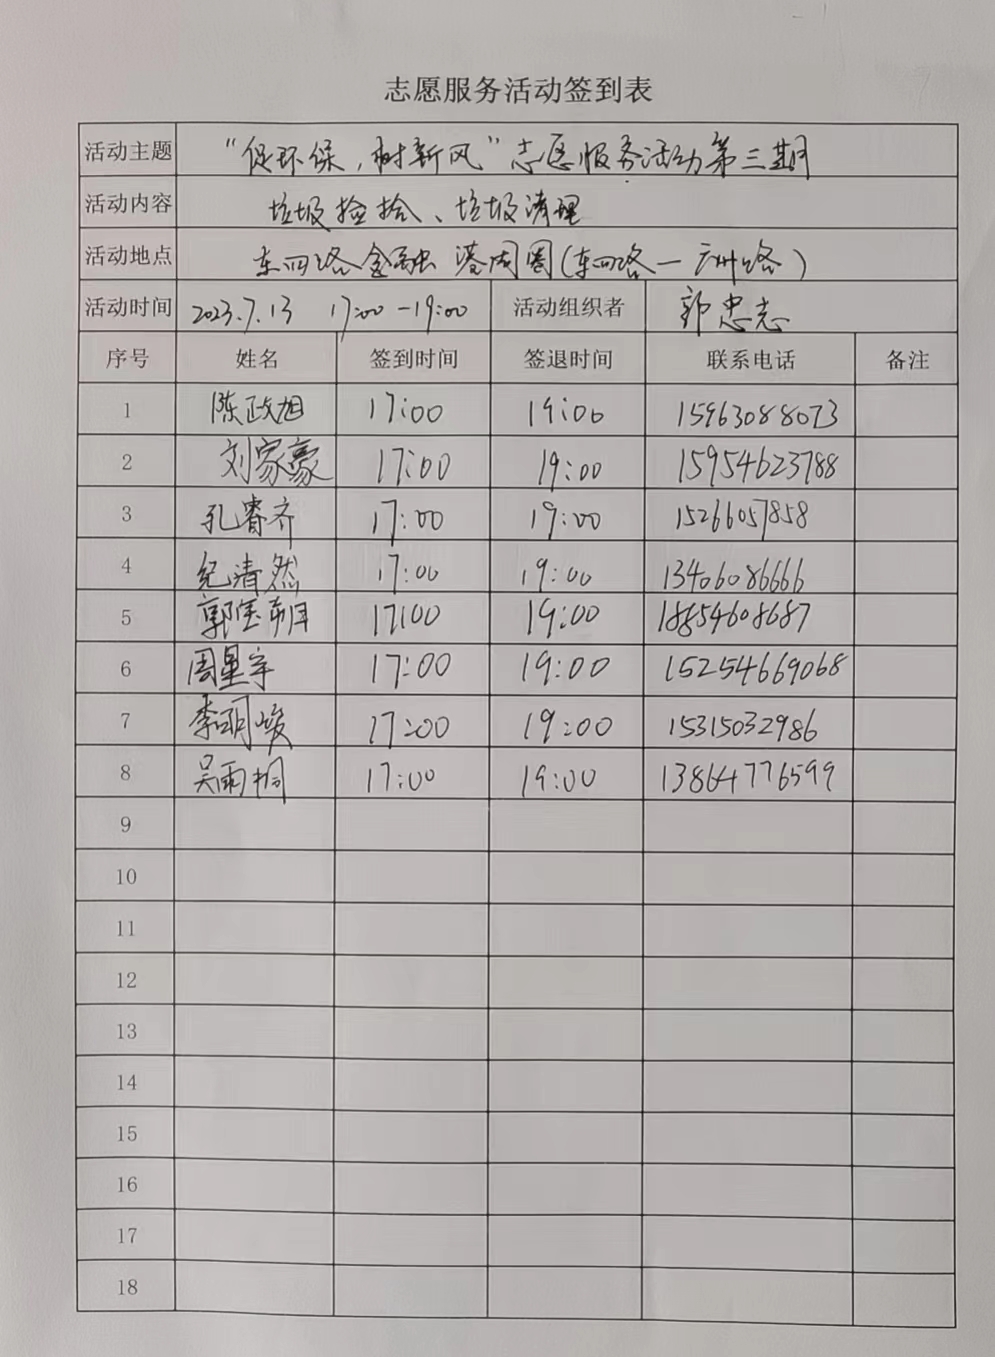 志愿服务活动签到表
活动主题 “促环保，树新风”志愿服务活动第三期
活动内容 垃圾捡拾、垃圾清理
活动地点 东四路金融港周围(东四路一 路)
活动时间 2023.7.13 17:00-19:00 活动组织者 郭忠志
序号 姓名 签到时间 签退时间 联系电话 备注
1 陈政旭 17:00 19:00 15963088073
2 刘家豪 17:00 19:00 15954623788
3 孔睿齐 17:00 19:00 15266057858
4 纪清然 17:00 19:00 13406086666
5 郭 17:00 19:00 18854608687
6 周星宇 17:00 19:00 15254669068
7 李明峻 17:00 19:00 15315032986
8 吴雨桐 17:00 19:00 13864776599
9
10
11
12
13
14
15
16
17
18